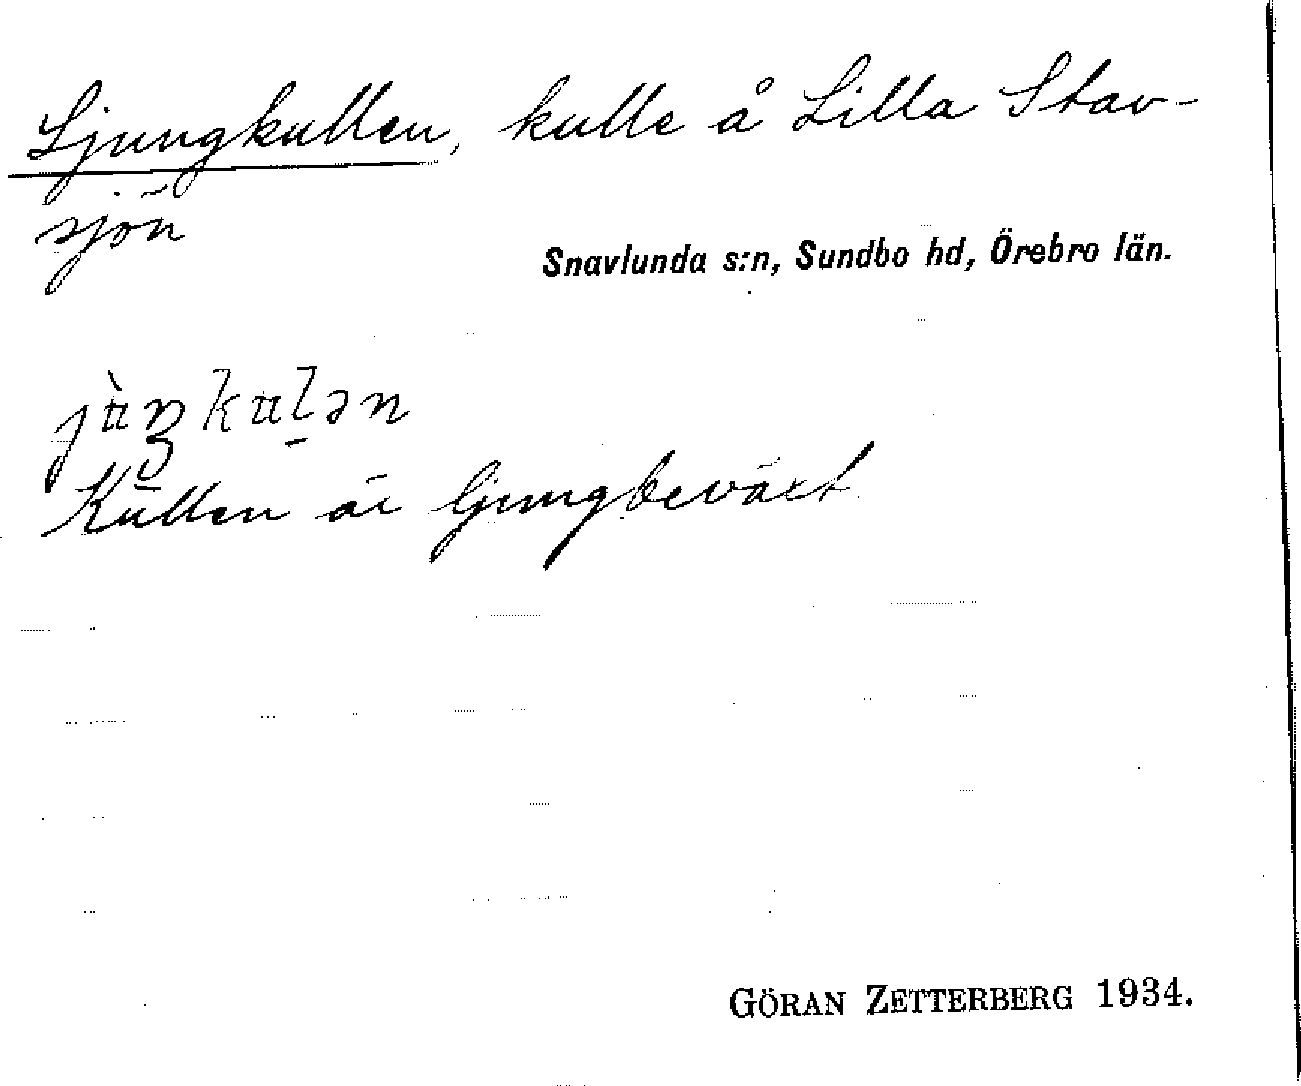 Ljungkullen, kulle å Lilla Stav-
sjön
Snavlunda s:n, Sundbo hd, Örebro län.
jùŋkulən
Kullen är ljungbeväxt
GÖRAN ZETTERBERG 1934.